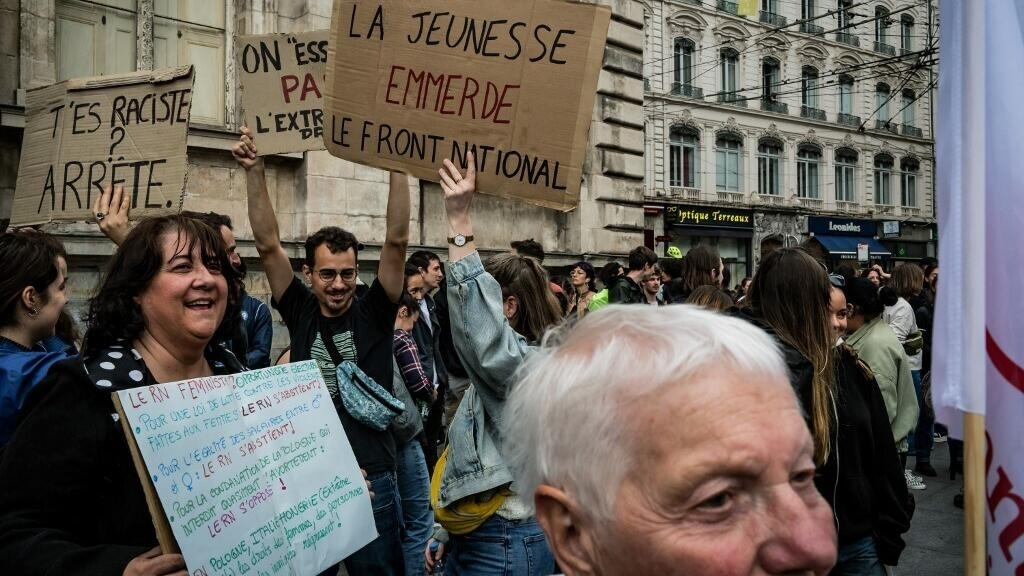 T'ES RACISTE
?
ARRÊTE.
ON "ESSE
PA
L'EXTR
DR
LA JEUNESSE
EMMERDE
LE FRONT NATIONAL
Optique Terreaux
Leonidas
LE RN FEMINISTE? OPPORTUNISME ELECTORAL
POUR UNE LOI DE LUTTE CONTRE LES VIOLENCES
FAITES AUX FEMMES LE RN S'ABSTIENT!
POUR L'EGALITÉ DES SALAIRES ENTRE ♂
et ♀: LE RN S'ABSTIENT!
POUR LA CONDAMNATION DE LA POLOGNE QUI
INTERDIT QUASIMENT L'AVORTEMENT:
LE RN S'OPPOSE!
EN POLOGNE, ITALIE, HONGRIE (extrême
les droits des femmes, des personnes
régressent!
LE RN